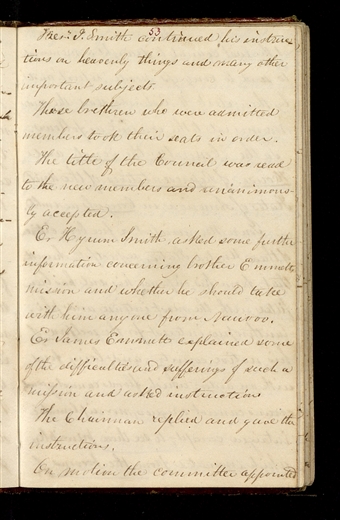 53
Pres.t J. Smith continued his instruc-
tions on heavenly things and many other
important subjects
Those brethren who were admitted
members took their seats in order.
The title of the Council was read
to the new members and unanimous-
ly accepted.
Er Hyrum Smith asked some further
information concerning brother Emmetts
mission and whether he should take
with him any one from Nauvoo.
Er James Emmett explained some
of the difficulties and sufferings of such a
mission and asked instructions
The Chairman replied and gave the
instructions.
On motion the committee appointed